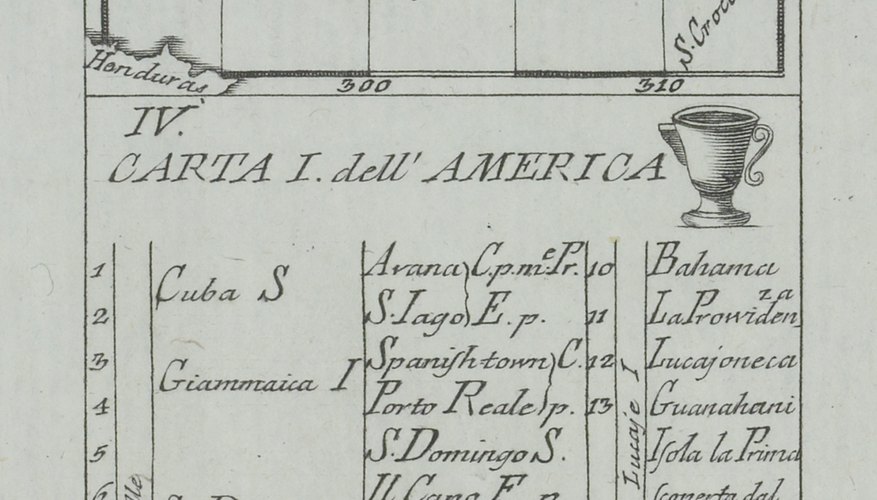 S. Croce
Honduras
300
310
IV.
CARTA I. dell' AMERICA
1 Cuba S Avana C.p.m.e Pr. 10 Bahama
2 S. Iago E. p. 11 La Prowiden za
3 Giammaica I Spanishtown C. 12 Lucajoneca
4 Porto Reale p. 13 Guanahani
5 S. Domingo S. Lucaje I Isola la Prima
6 Il Capo F. p. scoperta dal